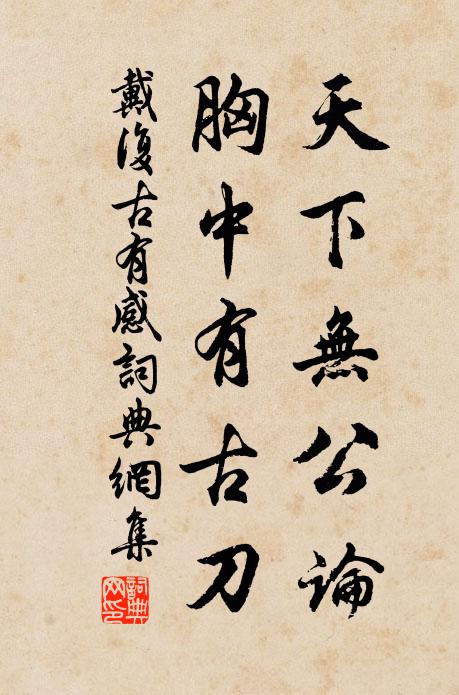 天下無公論
胸中有古刀
戴復古有感詞典網集
詞典網印